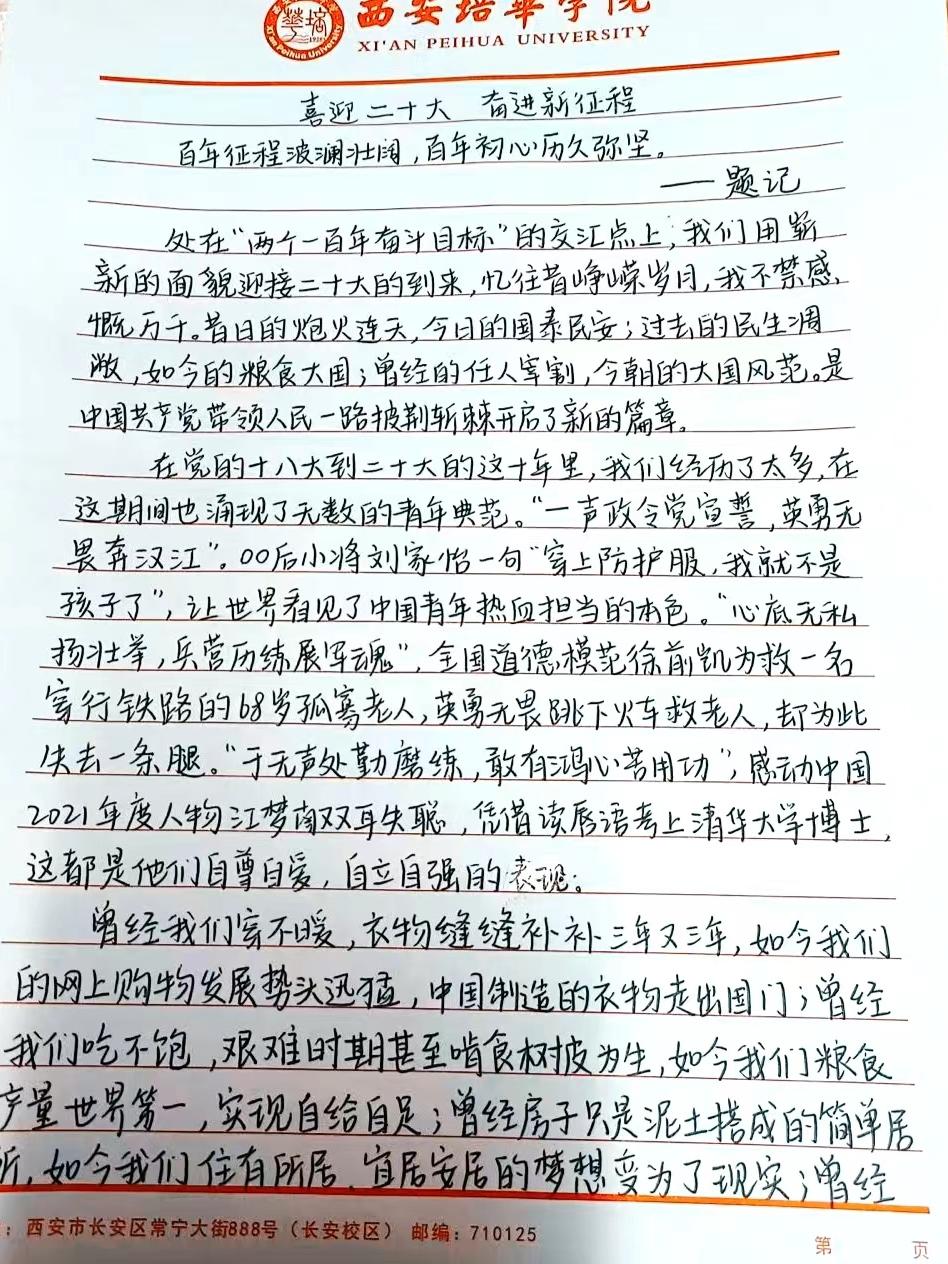 西安培華学院
XI'AN PEIHUA UNIVERSITY
喜迎二十大 奋进新征程
百年征程波澜壮阔，百年初心历久弥坚。
——题记
处在“两个一百年奋斗目标”的交汇点上，我们用崭
新的面貌迎接二十大的到来，忆往昔峥嵘岁月，我不禁感
慨万千。昔日的炮火连天，今日的国泰民安；过去的民生凋
敝，如今的粮食大国；曾经的任人宰割，今朝的大国风范。是
中国共产党带领人民一路披荆斩棘开启了新的篇章。
在党的十八大到二十大的这十年里，我们经历了太多，在
这期间也涌现了无数的青年典范。“一声政令党宣誓，英勇无
畏奔汉江”。00后小将刘家怡一句“穿上防护服，我就不是
孩子了”，让世界看见了中国青年热血担当的本色。“心底无私
扬壮举，兵营历练展军魂”，全国道德模范徐前凯为救一名
穿行铁路的68岁孤寡老人，英勇无畏跳下火车救老人，却为此
失去一条腿。“于无声处勤磨练，敢有鸿心苦用功”，感动中国
2021年度人物江梦南双耳失聪，凭借读唇语考上清华大学博士，
这都是他们自尊自爱，自立自强的表现。
曾经我们穿不暖，衣物缝缝补补三年又三年，如今我们
的网上购物发展势头迅猛，中国制造的衣物走出国门；曾经
我们吃不饱，艰难时期甚至啃食树皮为生，如今我们粮食
产量世界第一，实现自给自足；曾经房子只是泥土搭成的简单居
所，如今我们住有所居、宜居安居的梦想变为了现实；曾经
：西安市长安区常宁大街888号（长安校区） 邮编：710125
第 页